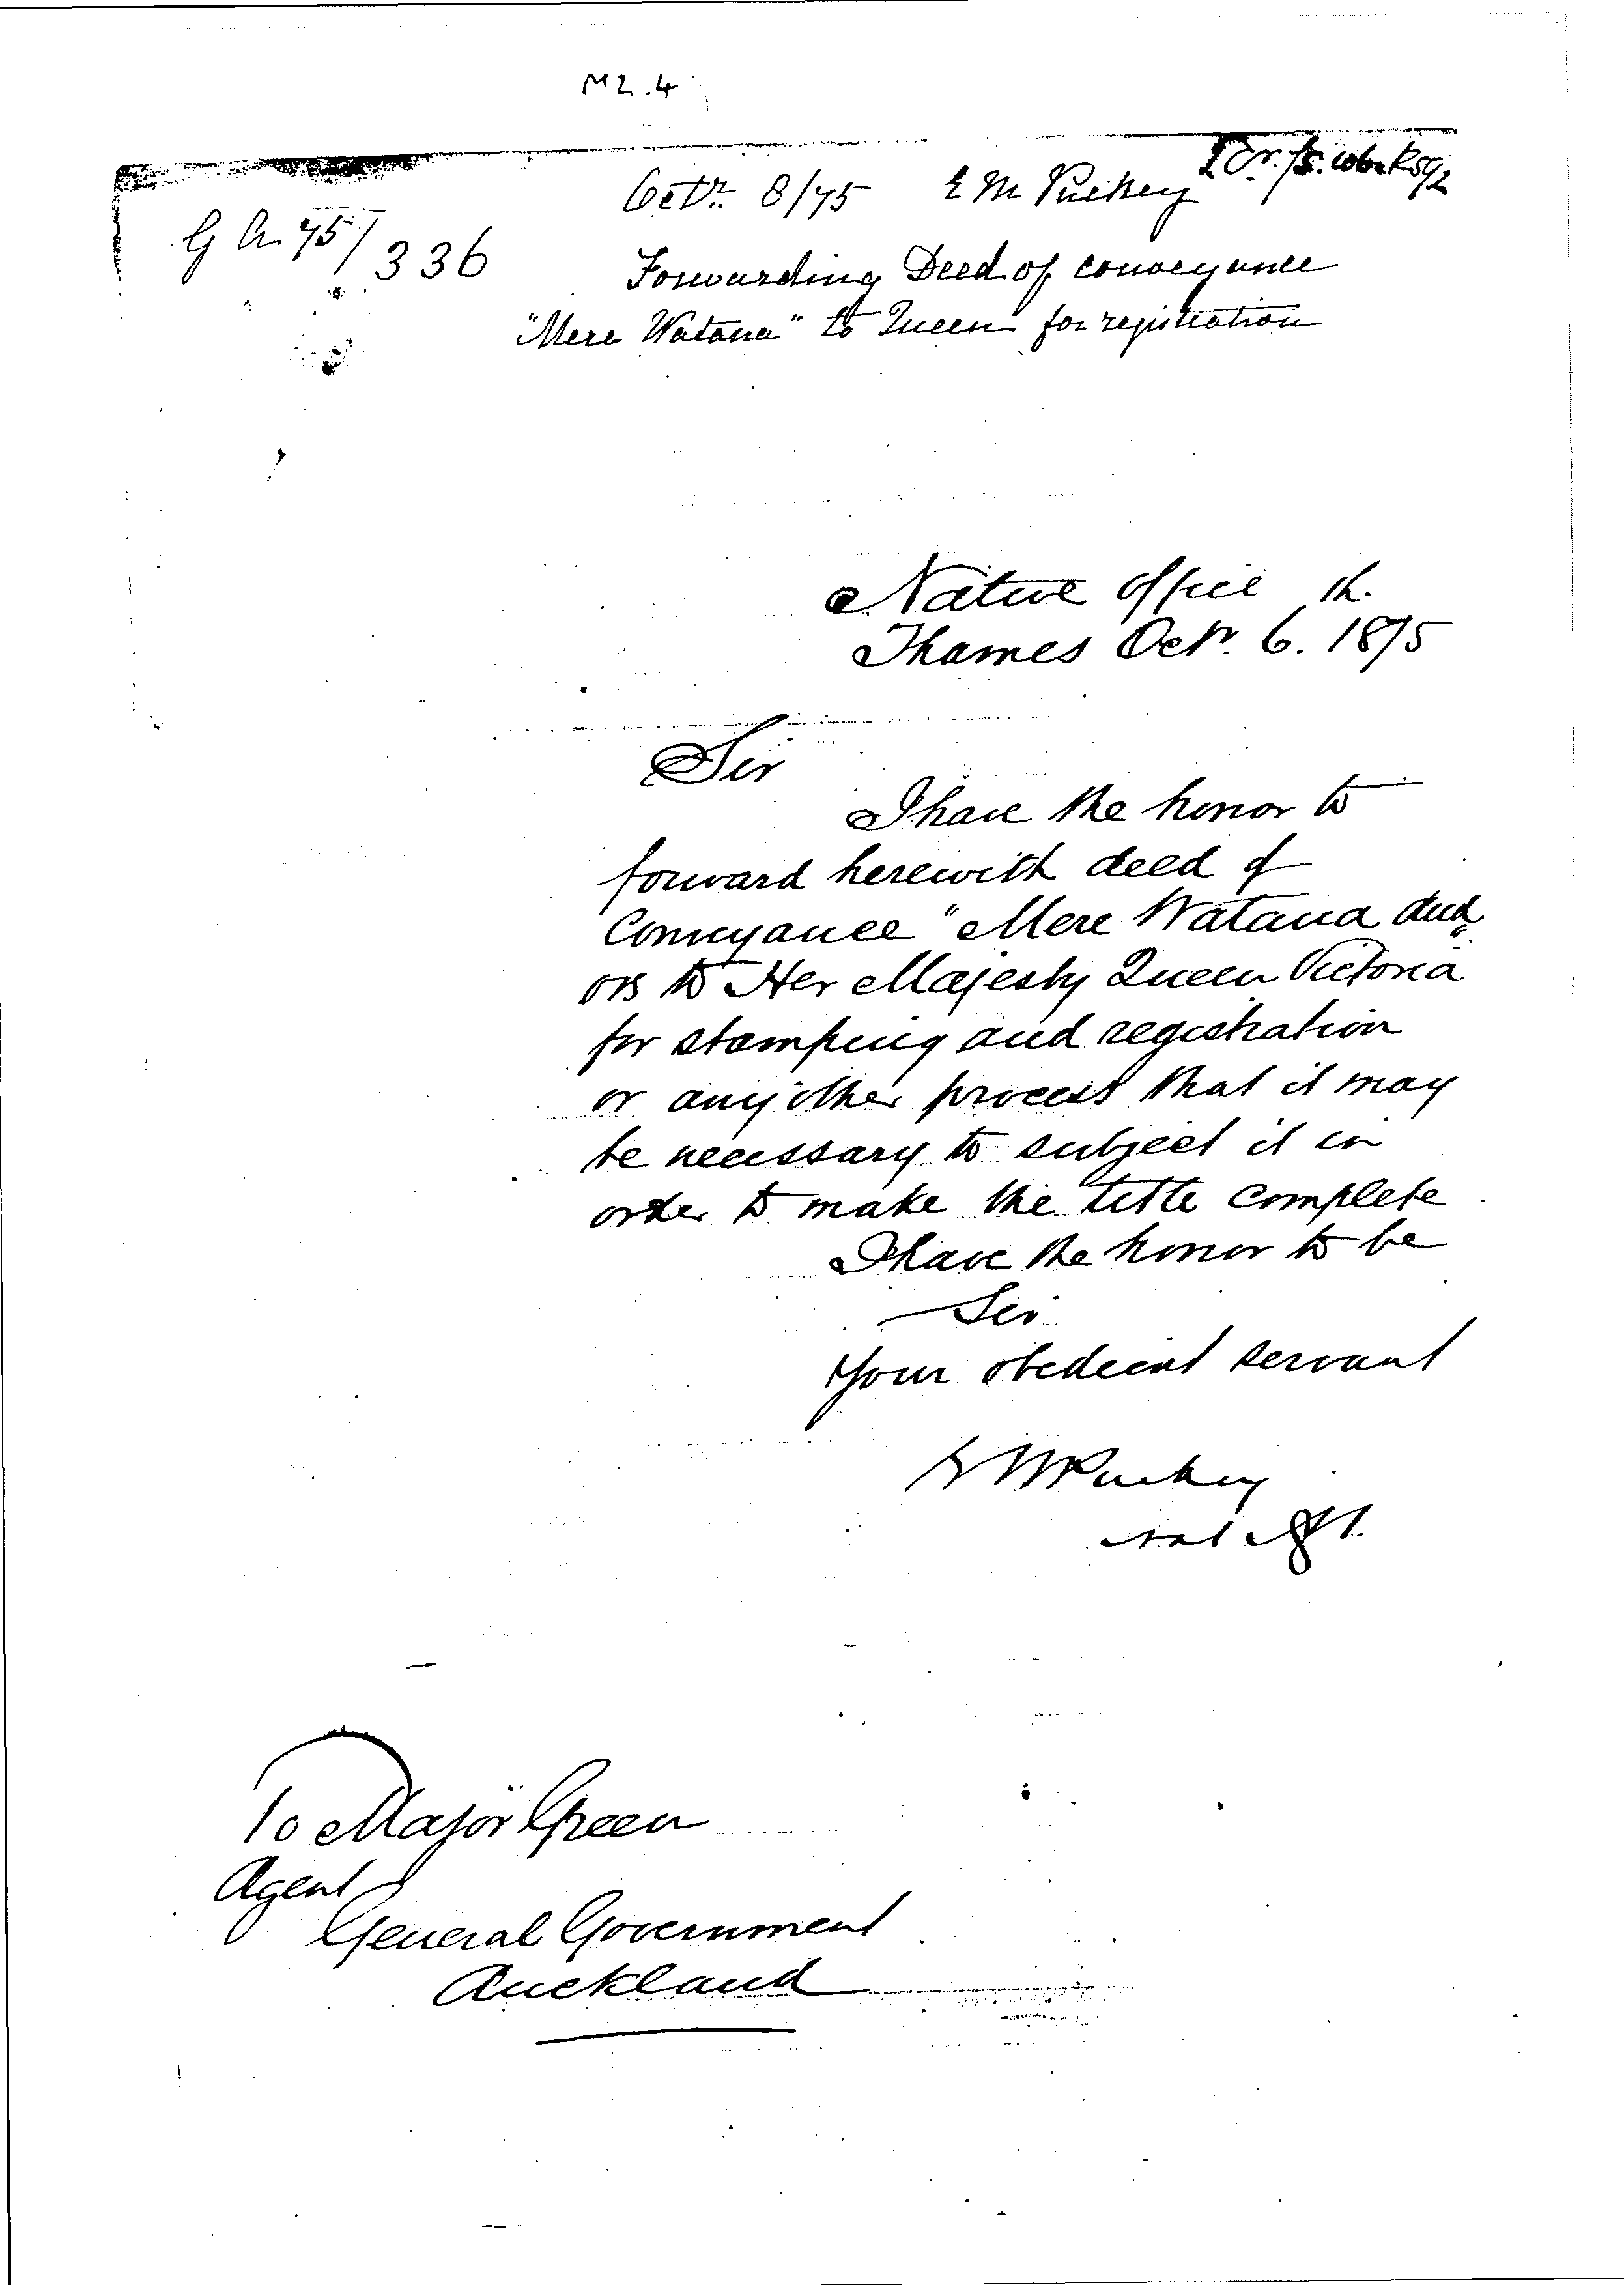 M2.4
Octr. 8/75 E M Puckey
G A. 75/336
Forwarding Deed of conveyance
"Mere Watana" to Queen for registration
Native Office
Thames Octr. 6. 1875
Sir
I have the honor to
forward herewith deed of
Conveyance "Mere Watana and
ors to Her Majesty Queen Victoria
for stamping and registration
or any other process that it may
be necessary to subject it in
order to make the title complete
I have the honor to be
Sir
Your obedient servant
E W Puckey
Nat Agt.
To Major Green
Agent
General Government
Auckland